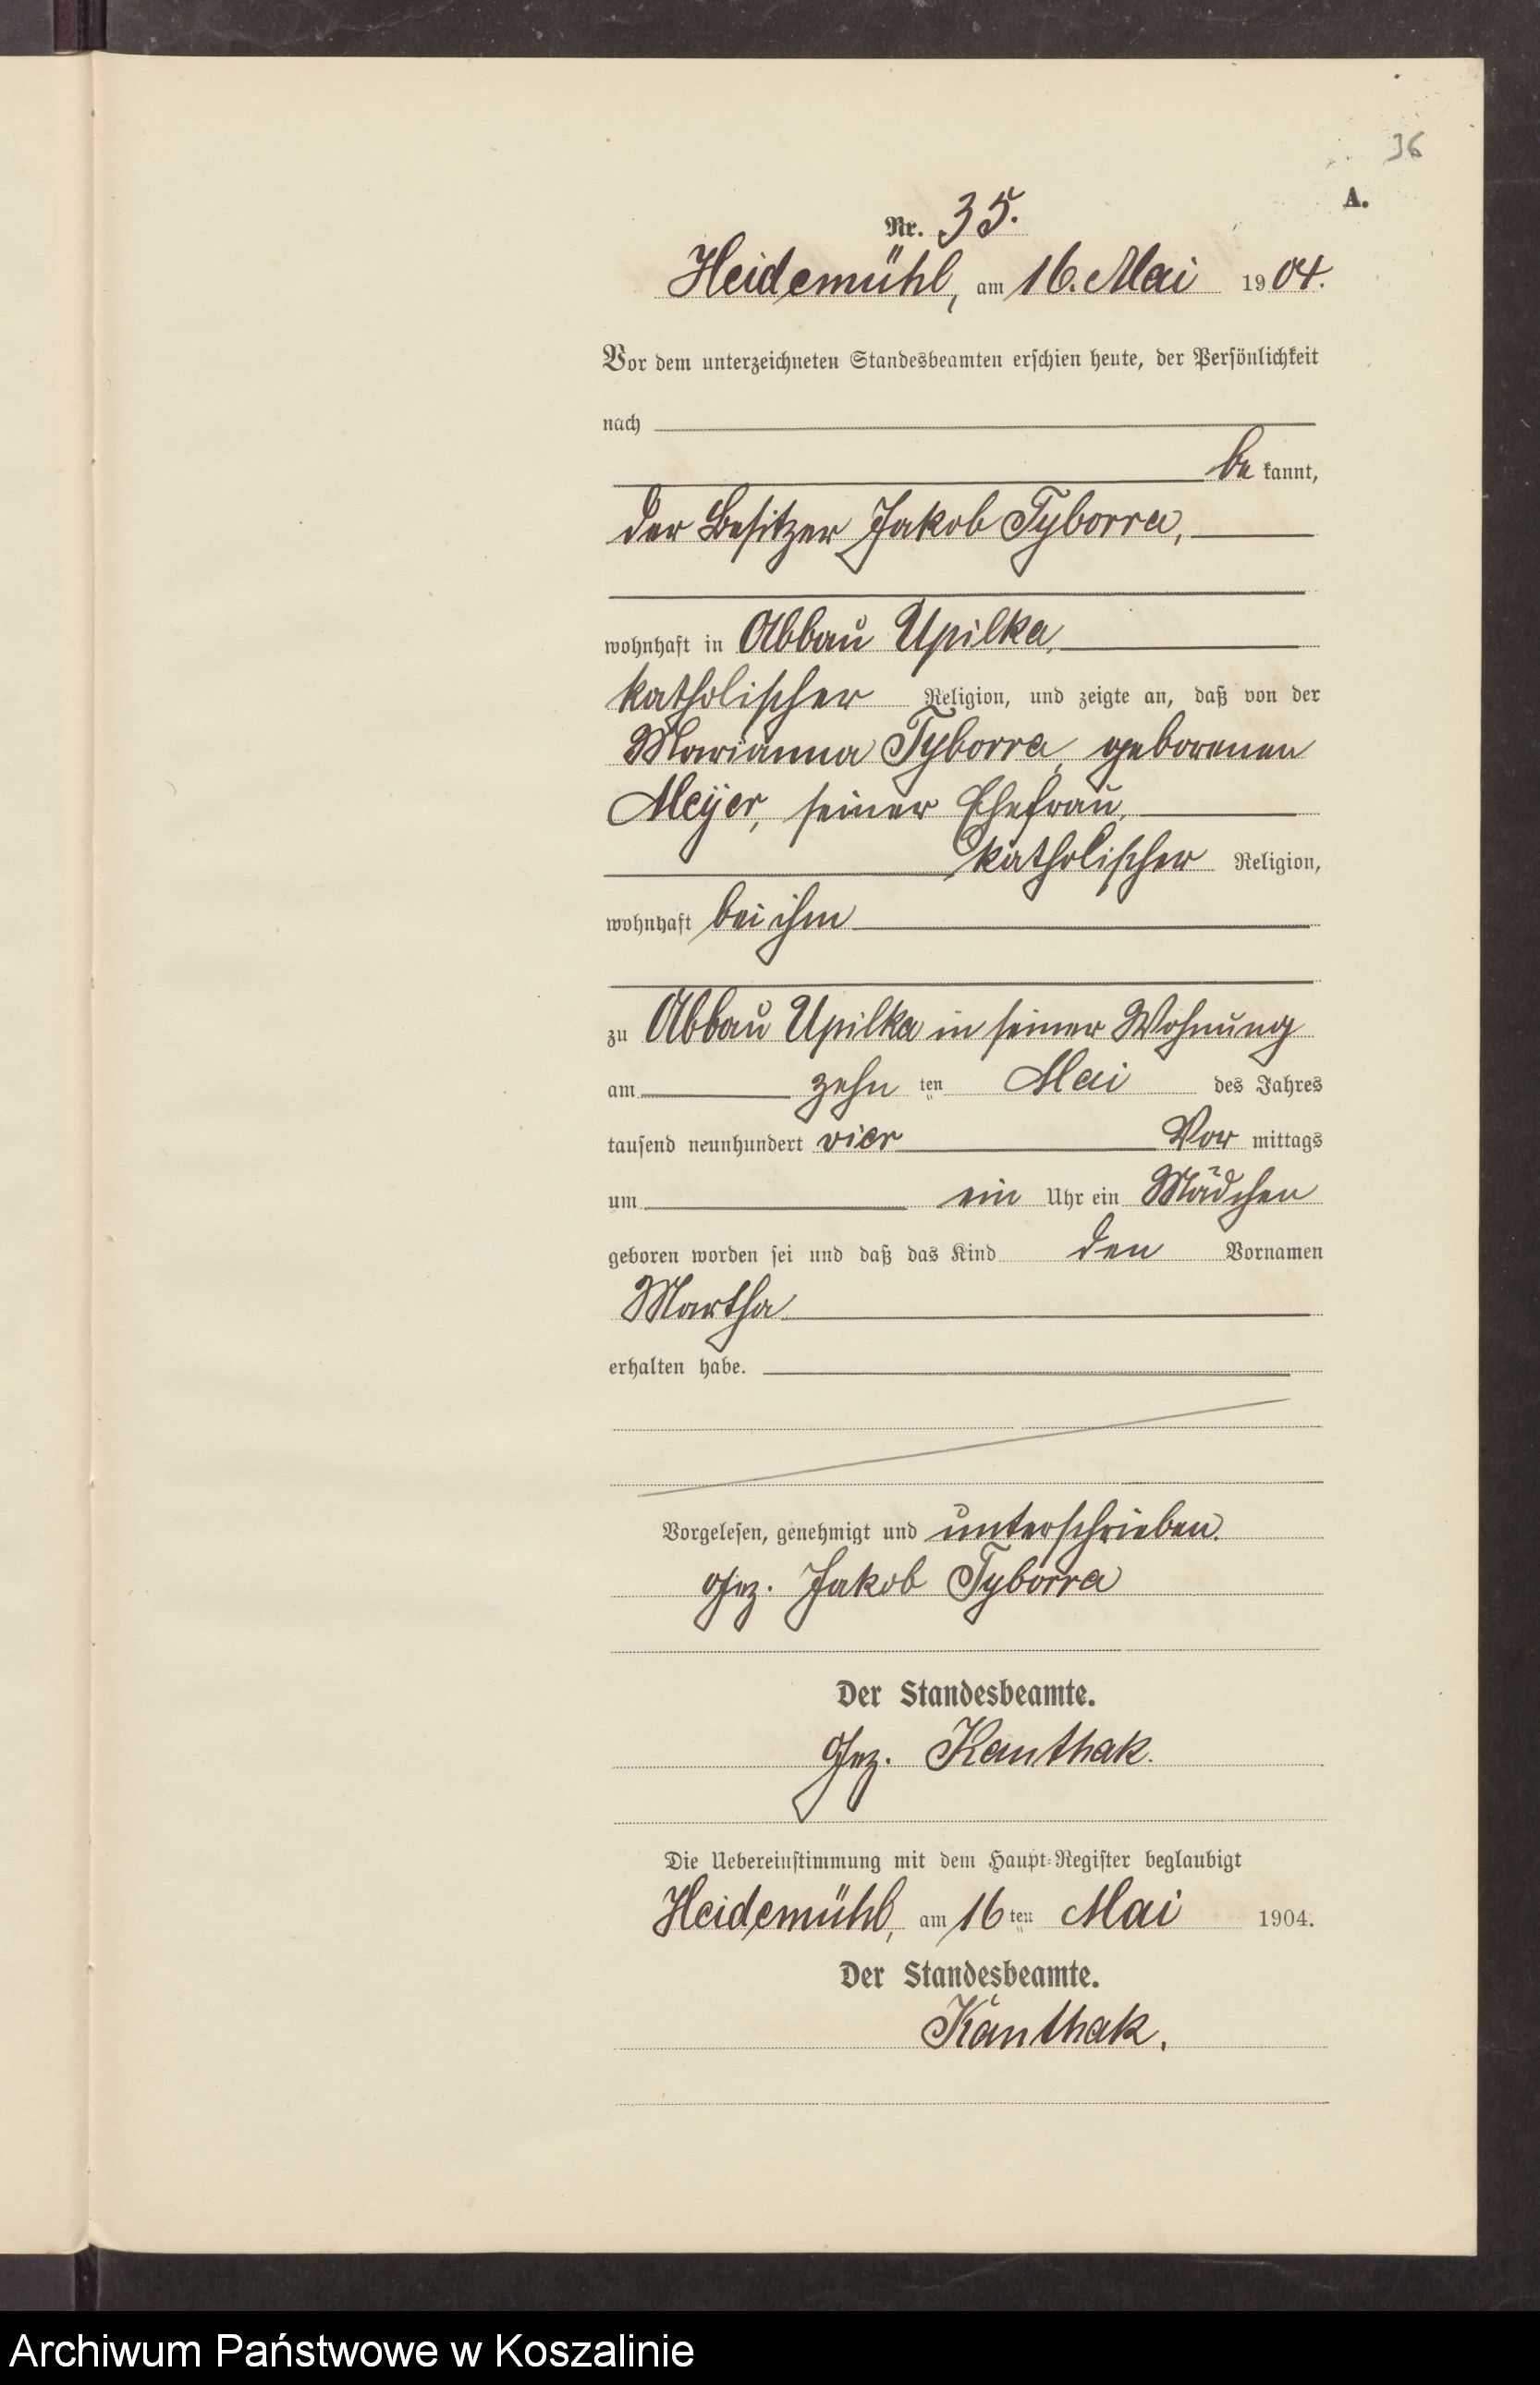 36
A.
Nr. 35.
Heidemühl, am 16. Mai 1904.
Vor dem unterzeichneten Standesbeamten erschien heute, der Persönlichkeit
nach
be kannt,
der Besitzer Jakob Tyborra,
wohnhaft in Abbau Upilka,
katholischer Religion, und zeigte an, daß von der
Marianna Tyborra, geborenen
Meÿer, seiner Ehefrau,
katholischer Religion,
wohnhaft bei ihm
zu Abbau Upilka in seiner Wohnung
am zehn ten Mai des Jahres
tausend neunhundert vier Vor mittags
um ein Uhr ein Mädchen
geboren worden sei und daß das Kind den Vornamen
Martha
erhalten habe.
Vorgelesen, genehmigt und unterschrieben.
Gez. Jakob Tyborra
Der Standesbeamte.
Gez. Kanthak.
Die Uebereinstimmung mit dem Haupt-Register beglaubigt
Heidemühl, am 16 ten Mai 1904.
Der Standesbeamte.
Kanthak.
Archiwum Państwowe w Koszalinie